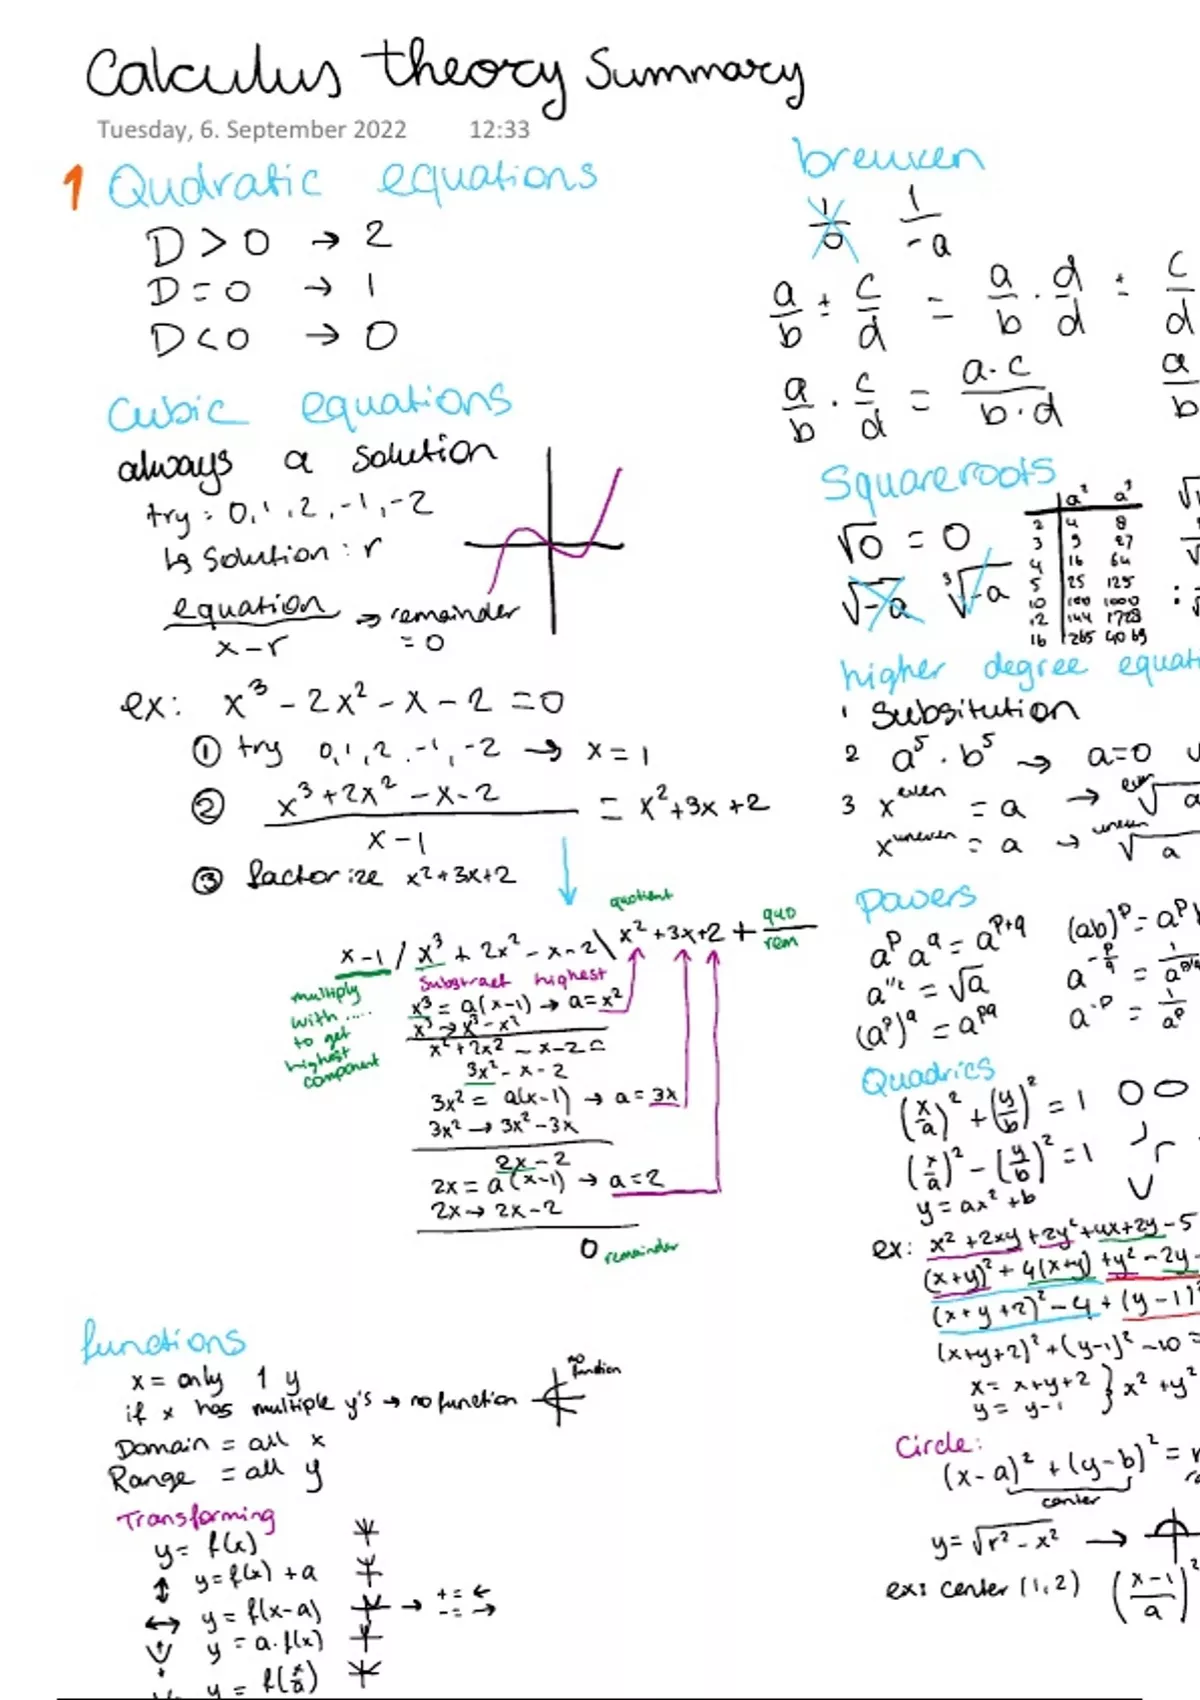 Calculus theory Summary
Tuesday, 6. September 2022 12:33
1 Qudratic equations
D > 0 → 2
D = 0 → 1
D < 0 → 0
Cubic equations
always a solution
try: 0, 1, 2, -1, -2
↳ solution: r
equation / x-r → remainder = 0
ex: x³ - 2x² - x - 2 = 0
① try 0, 1, 2, -1, -2 → x = 1
② x³ + 2x² - x - 2 / x - 1 = x² + 3x + 2
③ factorize x² + 3x + 2
quotient
x-1 / x³ + 2x² - x - 2 \ x² + 3x + 2 + quo / rem
multiply
with ....
to get
highest
component
Substract highest
x³ = a(x-1) → a = x²
x³ → x³ - x²
x² + 2x² - x - 2 =
3x² - x - 2
3x² = a(x-1) → a = 3x
3x² → 3x² - 3x
2x - 2
2x = a(x-1) → a = 2
2x → 2x - 2
0 remainder
functions
x = only 1 y
if x has multiple y's → no function
no function
Domain = all x
Range = all y
Transforming
y = f(x)
↕ y = f(x) + a
↔ y = f(x-a) → + = ← - = →
y = a·f(x)
y = f(x/a)
breuken
1/0 1/-a
a/b ÷ c/d = a/b · d/d ÷ c/d
a/b · c/d = a·c / b·d
a/b
Squareroots
√0 = 0
√-a ³√-a
a² a³
2 4 8
3 9 27
4 16 64
5 25 125
10 100 1000
12 144 1728
16 265 4069
higher degree equati
1 Subsitution
2 a⁵ · b⁵ → a=0
3 x^even = a → even√a
x^uneven = a → uneven√a
Powers
a^p a^q = a^p+q (ab)^p = a^p
a^1/2 = √a a^-p/q = 1/a^p/q
(a^p)^q = a^pq a^-p = 1/a^p
Quadrics
(x/a)² + (y/b)² = 1
(x/a)² - (y/b)² = 1
y = ax² + b
ex: x² + 2xy + 2y² + 4x + 2y - 5
(x+y)² + 4(x+y) + y² - 2y -
(x+y+2)² - 4 + (y-1)²
(x+y+2)² + (y-1)² - 10 =
x = x+y+2
y = y-1 } x² + y²
Circle:
(x-a)² + (y-b)² = r
center
y = √r² - x² →
ex: center (1, 2) (x-1/a)²